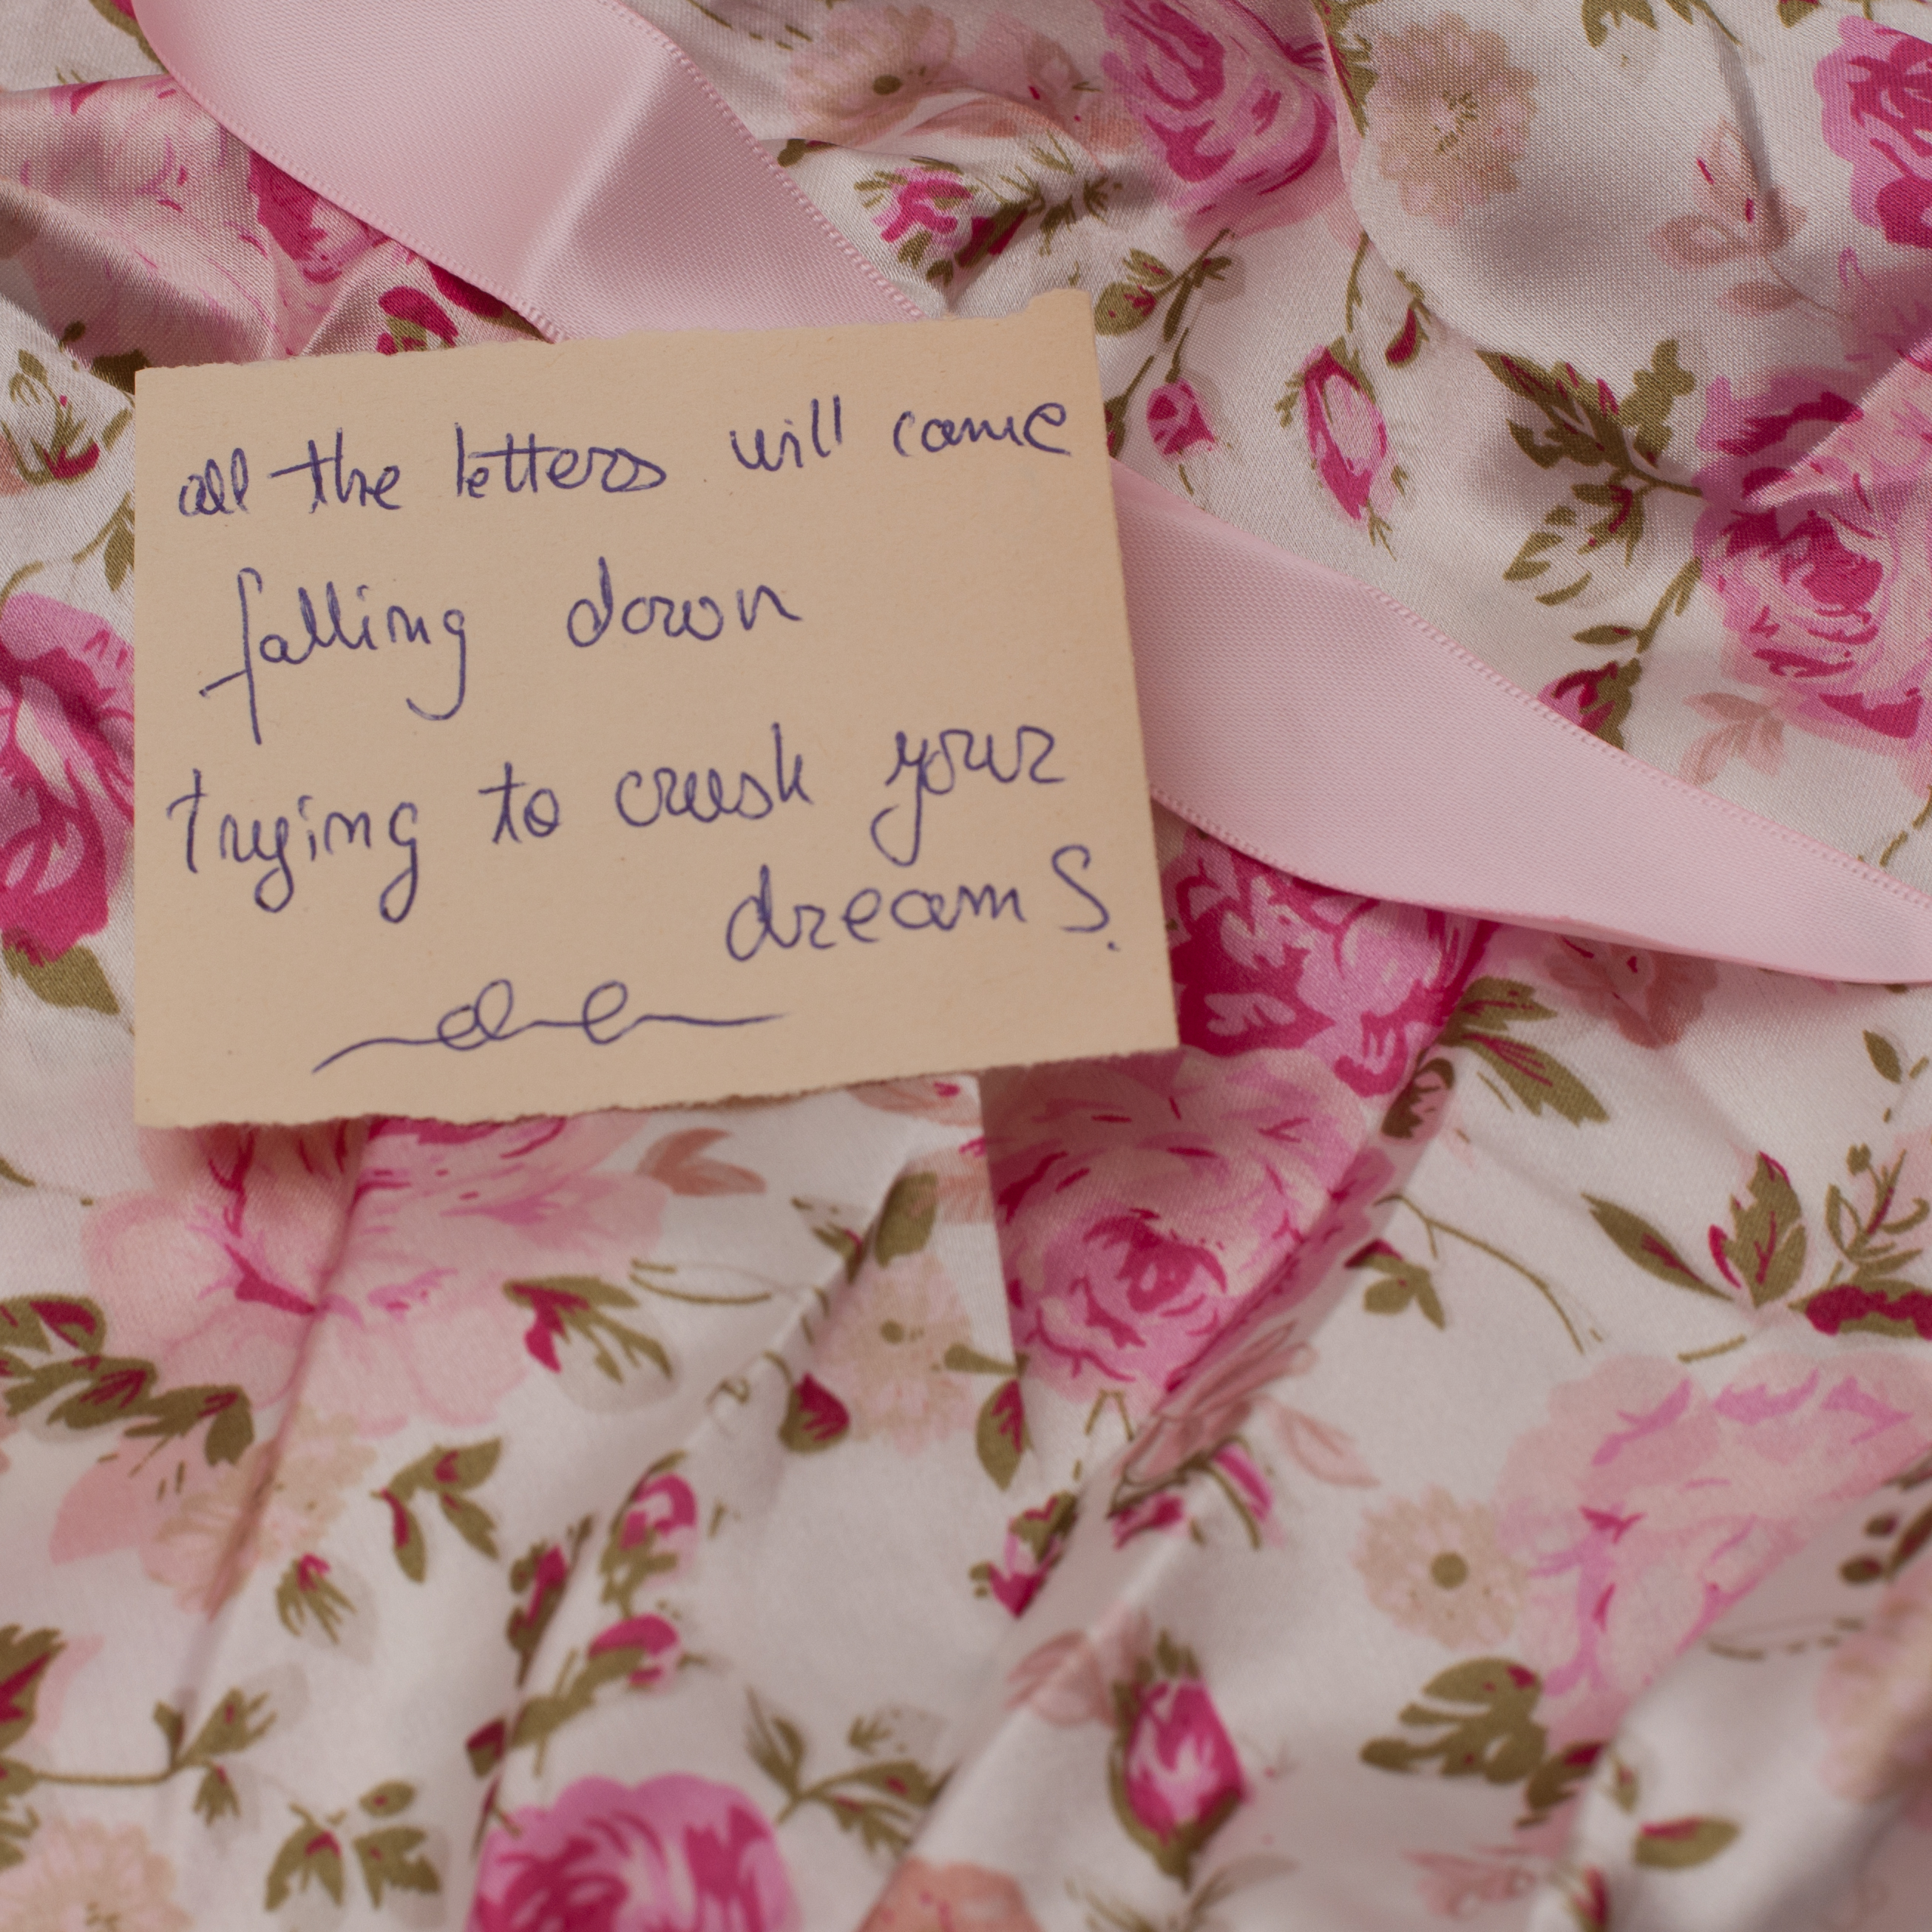 all the letters will come
falling down
trying to crush your
dreams.